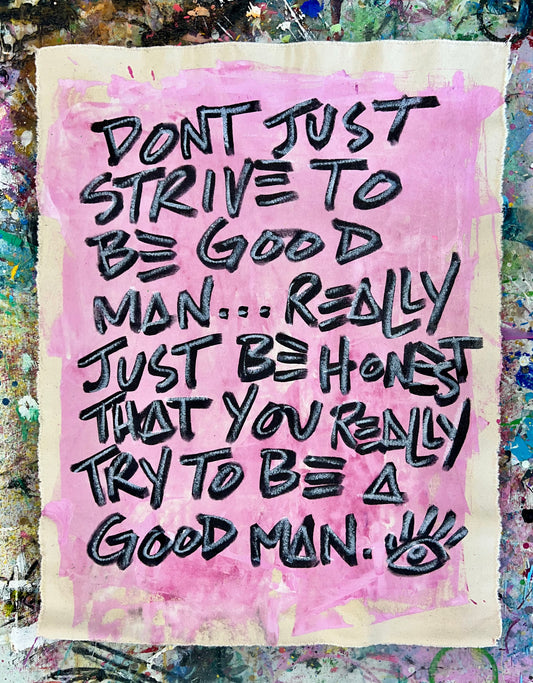 DONT JUST
STRIVE TO
BE GOOD
MAN... REALLY
JUST BE HONEST
THAT YOU REALLY
TRY TO BE A
GOOD MAN.